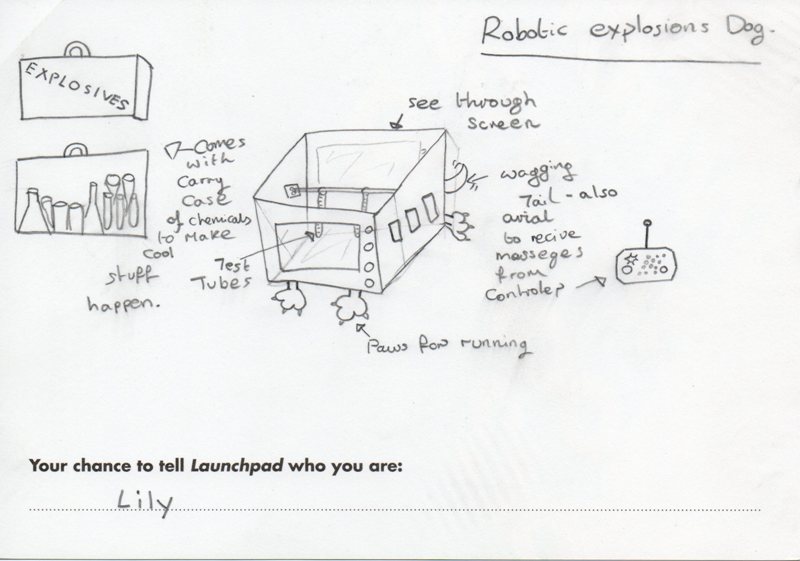 Robotic explosions Dog.
EXPLOSIVES
see through
screen
Comes
with
Carry
Case
of chemicals
to Make
Cool
stuff
happen.
wagging
Tail - also
arial
to recive
messeges
from
Controler
Test
Tubes
Paws for running
Your chance to tell Launchpad who you are:
Lily